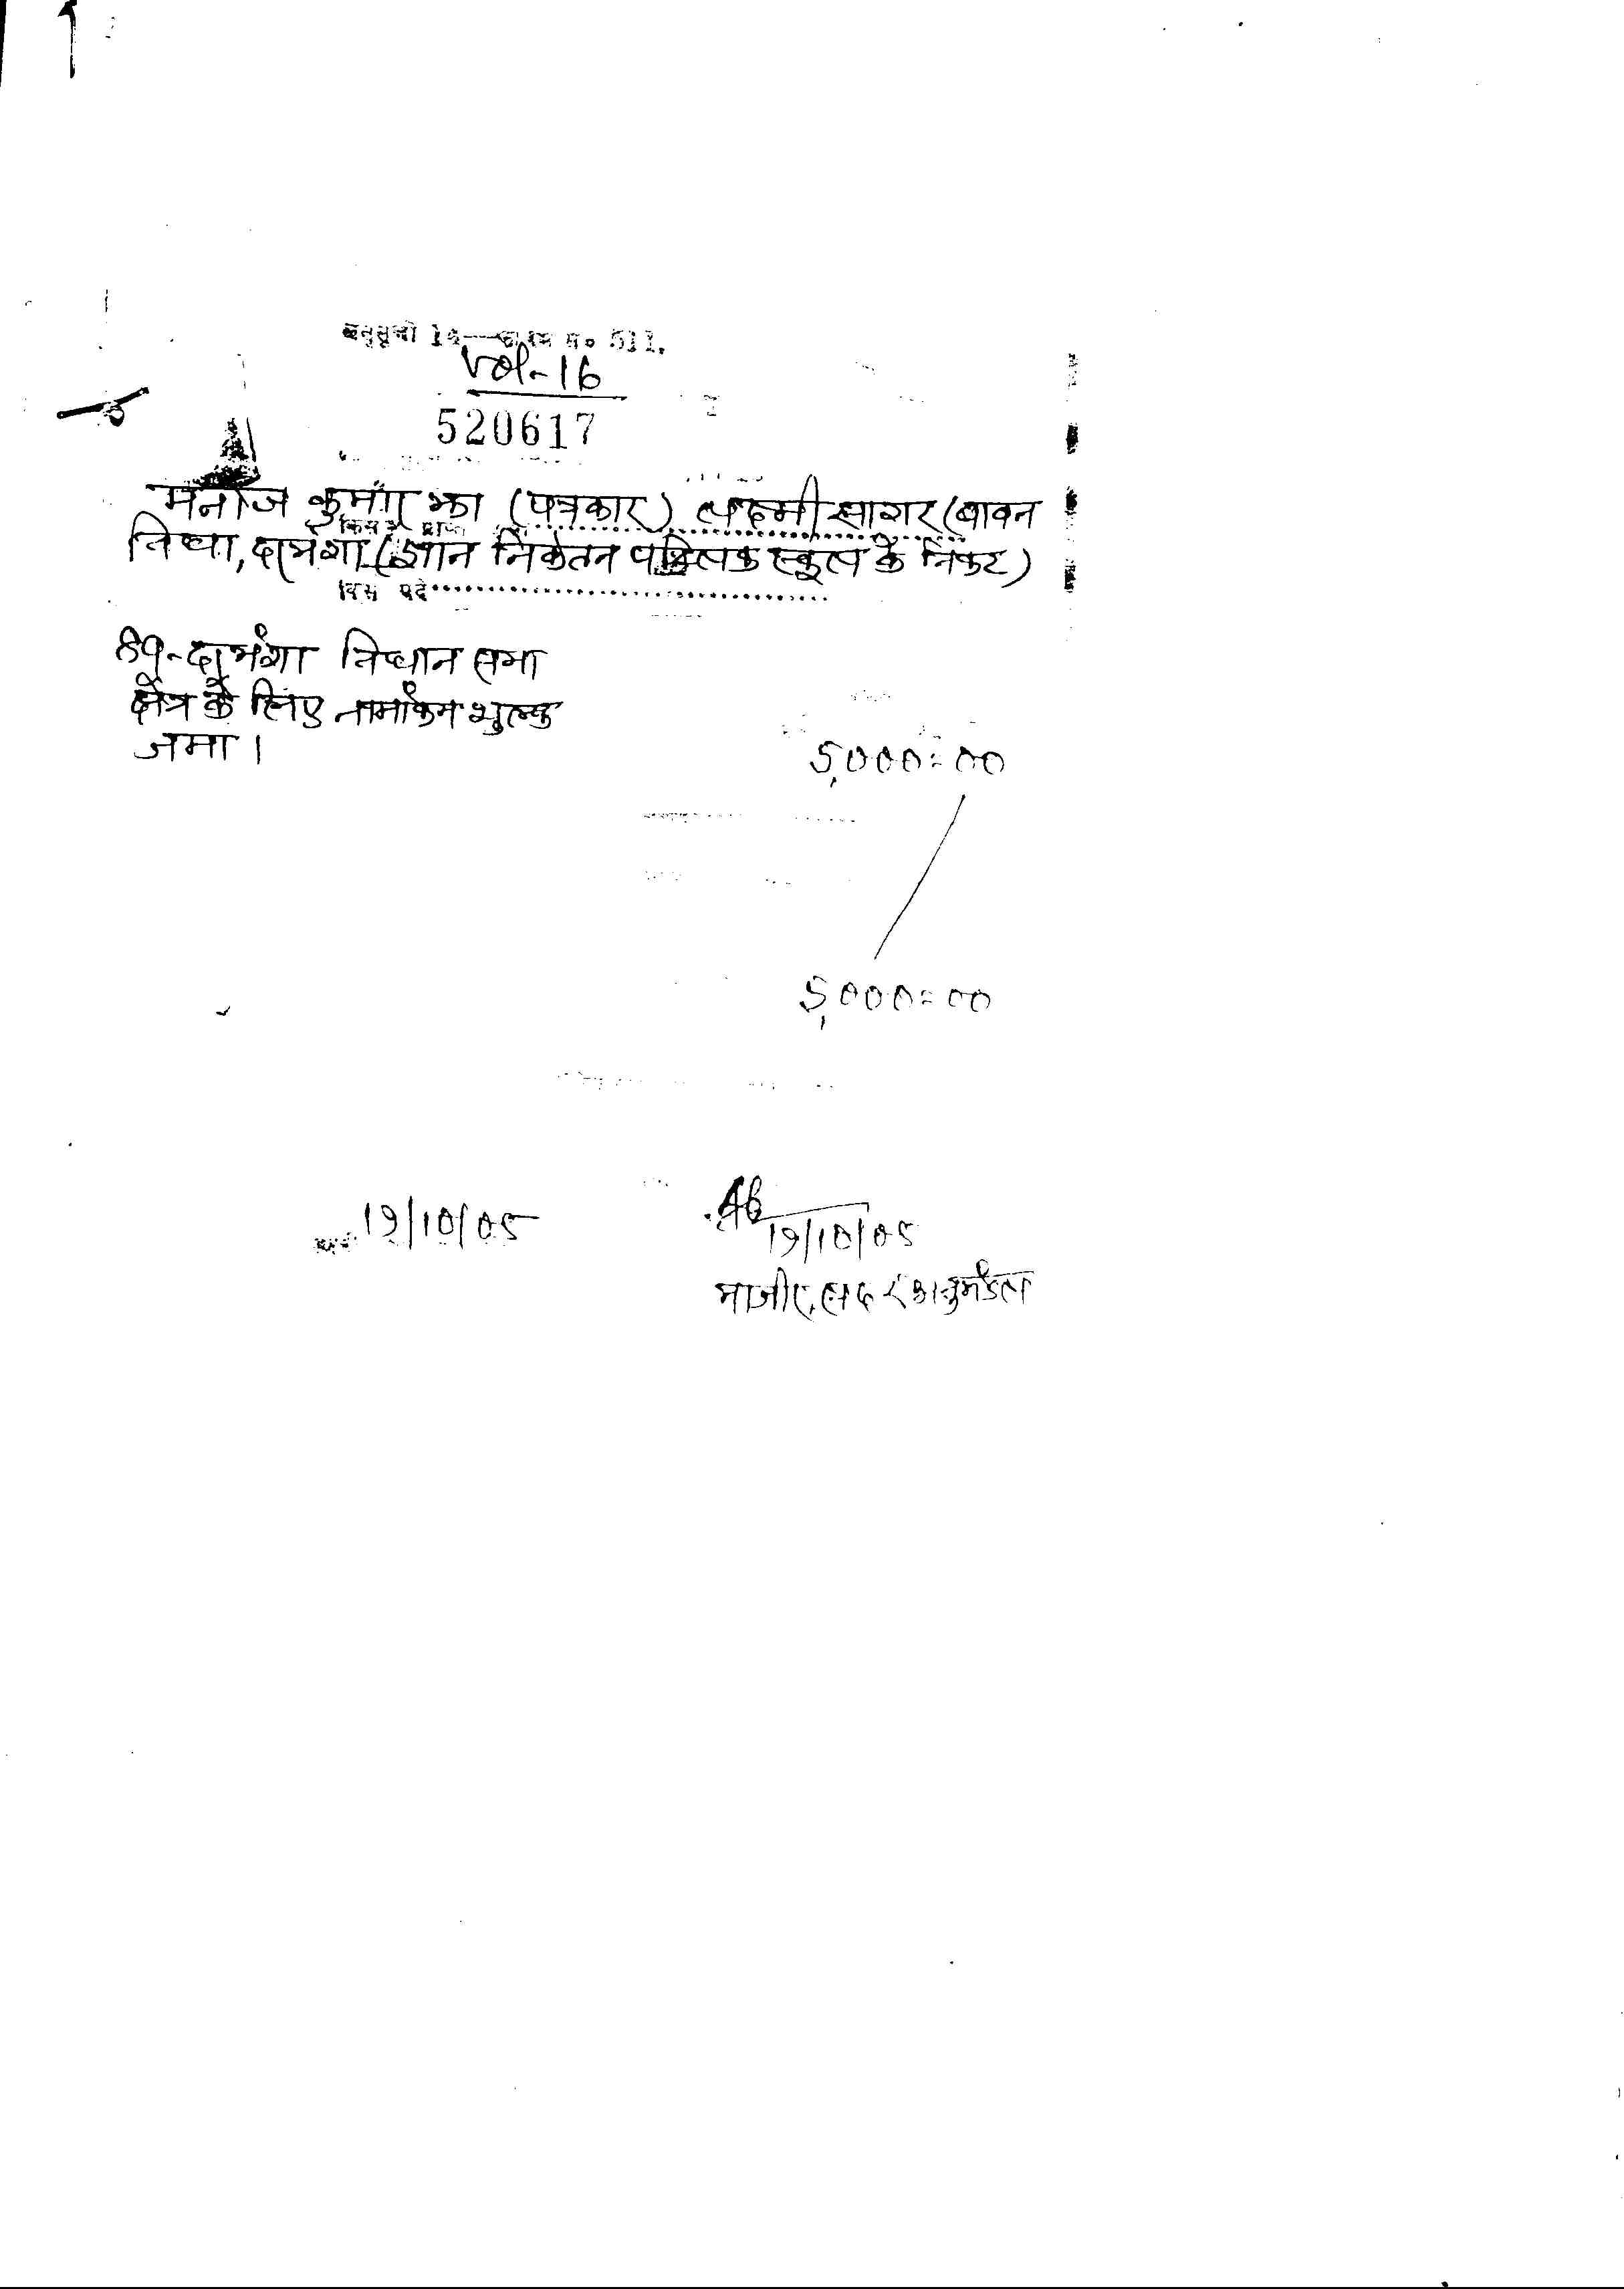 अनुसूची 14—फारम सं० 511.
Vol-16
520617
मनोज कुमार झा (पत्रकार) लक्ष्मी सागर (बावन
किससे प्राप्त
विघा, दरभंगा (ज्ञान निकेतन पब्लिक स्कूल के निकट)
किस मद
दरभंगा विधान सभा
क्षेत्र के लिए नामांकन शुल्क
जमा।
5,000=00
5,000=00
19/10/05
19/10/05
नाजीर, सदर अनुमंडल